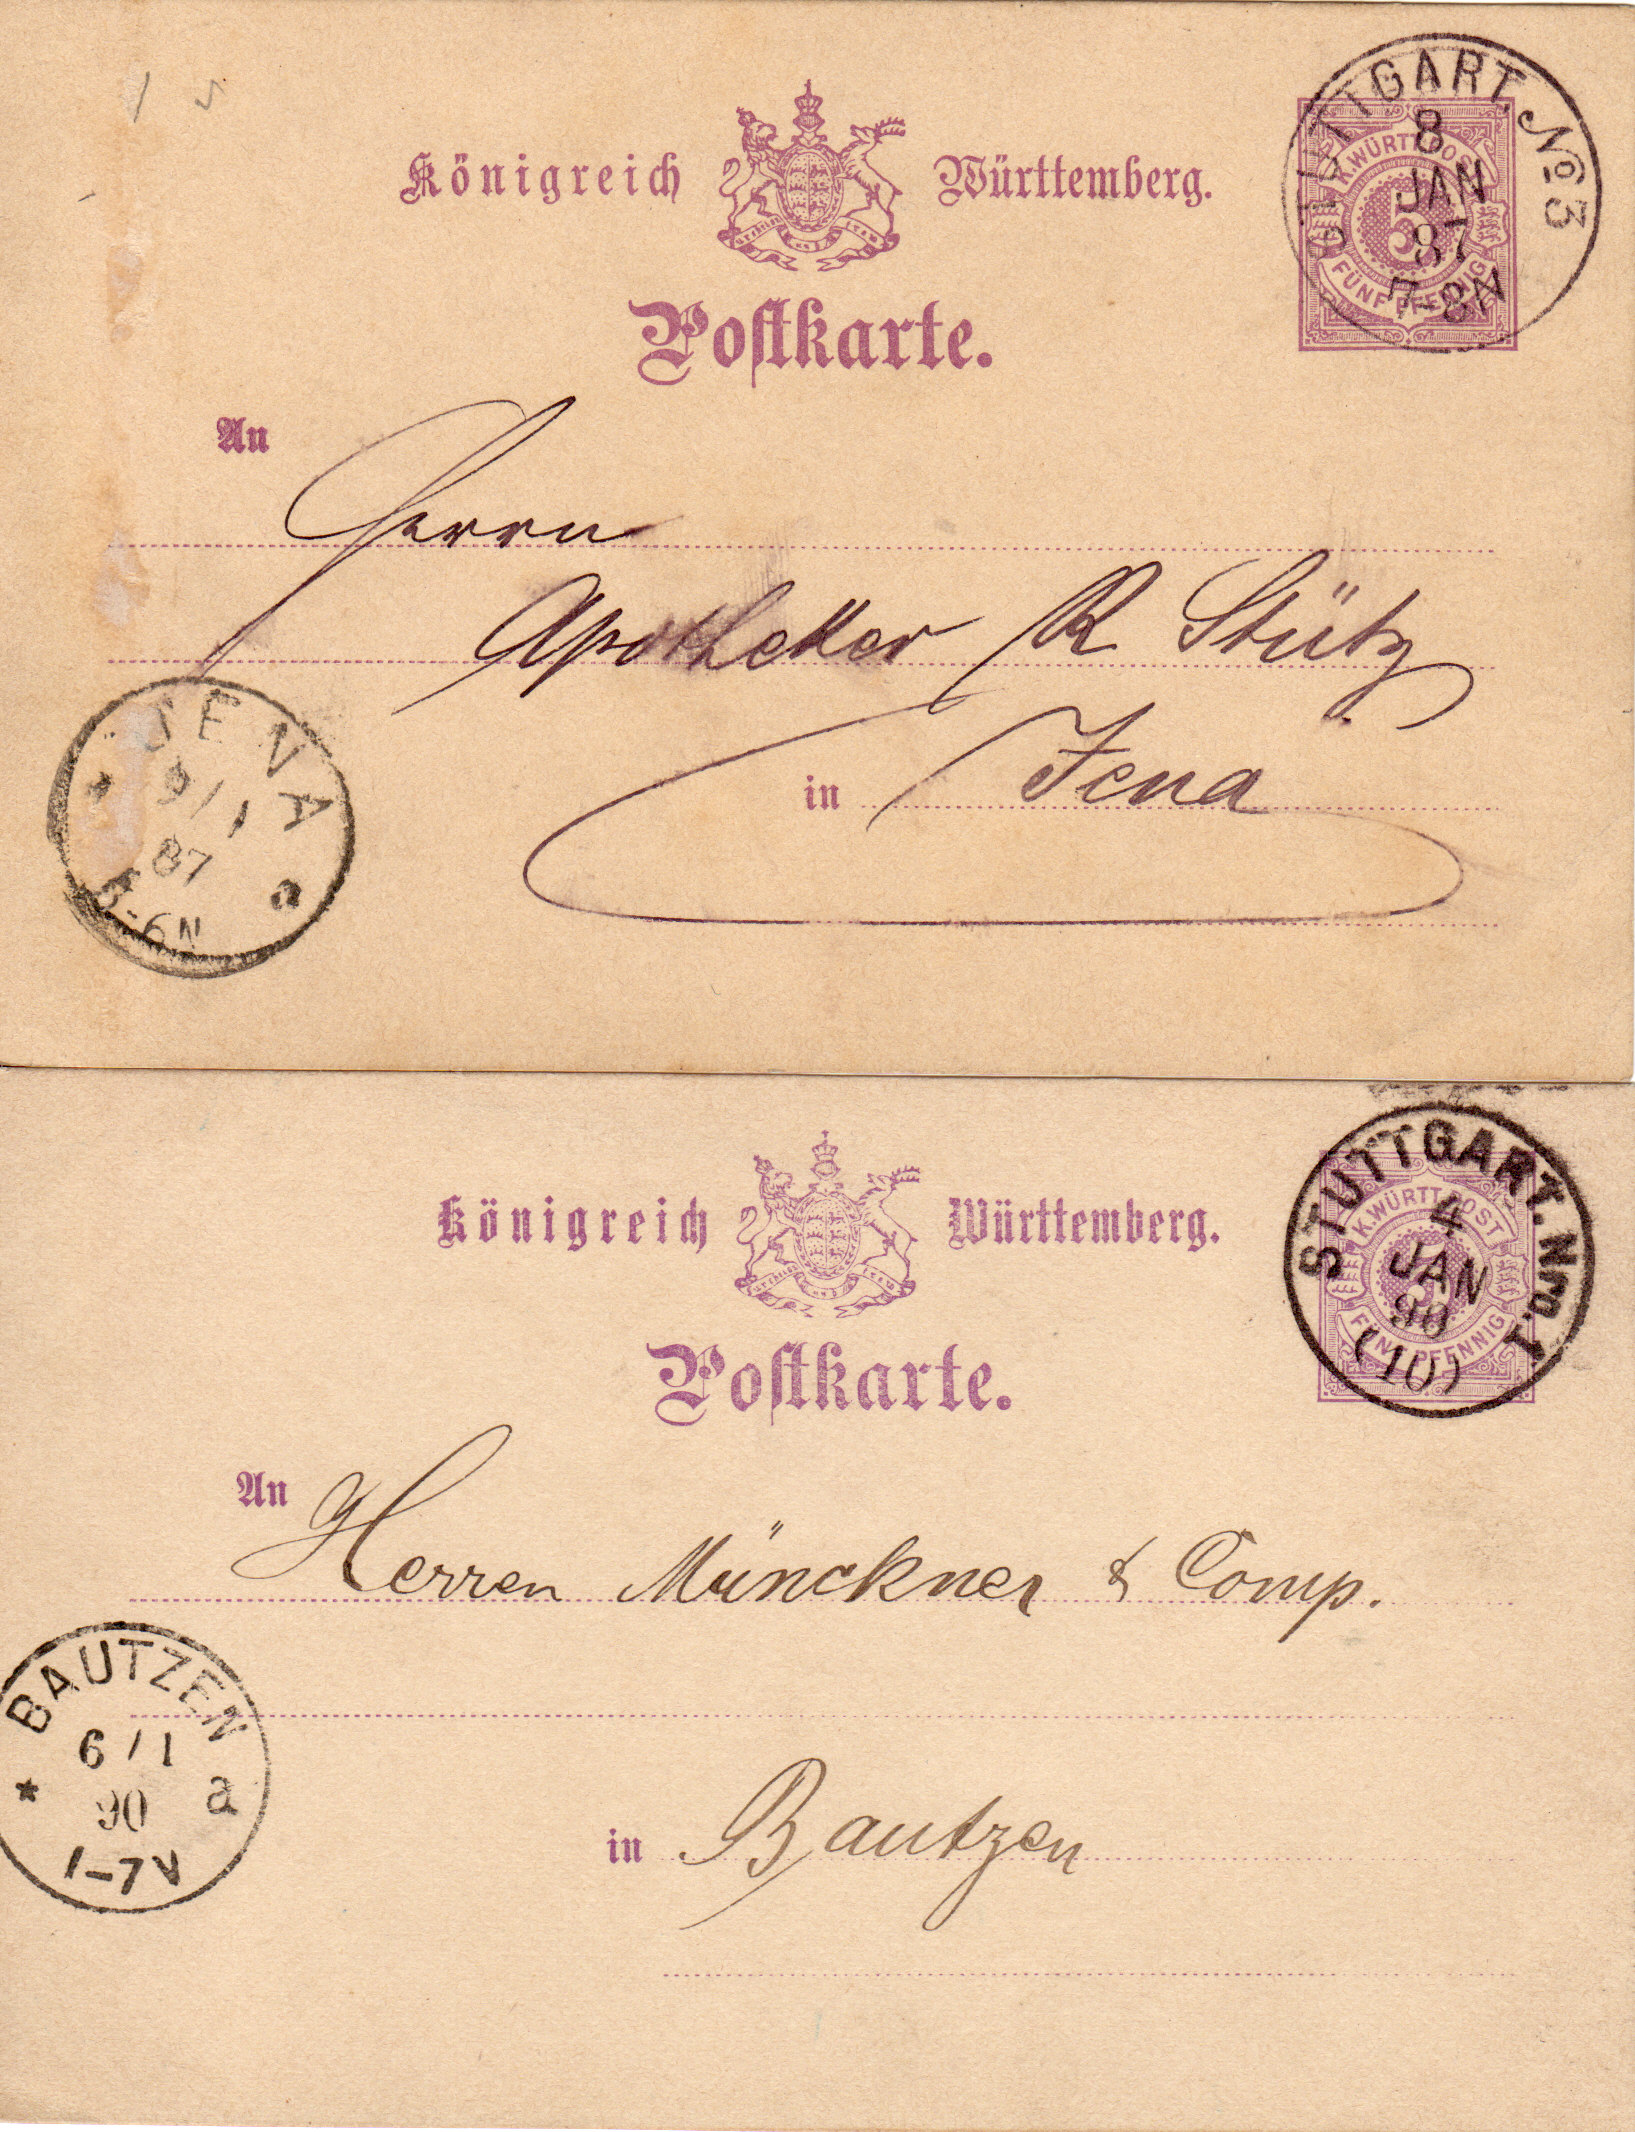 Königreich Württemberg.
STUTTGART. No 3
8
JAN
87
7-8N
K.WÜRTT.POST
5
FÜNF PFENNIG
Postkarte.
An
Herrn
Apotheker R Stütz
in Jena
JENA
9/1
87
5-6N
* a
Königreich Württemberg.
STUTTGART. Nro. I
4
JAN
90
(10)
K.WÜRTT.POST
5
FÜNF PFENNIG
Postkarte.
An
Herren Münckner & Comp.
BAUTZEN
6/1
90
* a
1-7V
in Bautzen